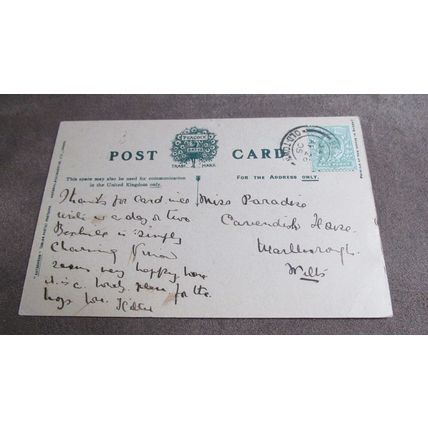 POST CARD
PEACOCK
TRADE MARK
This space may also be used for communication
in the United Kingdom only.
FOR THE ADDRESS ONLY.
Thanks for card will
write in a day or two
Bexhill is simply
charming
seems very happy here
it is a lovely place for the
boys
Miss Paradise
Cavendish House
Marlborough
Wilts